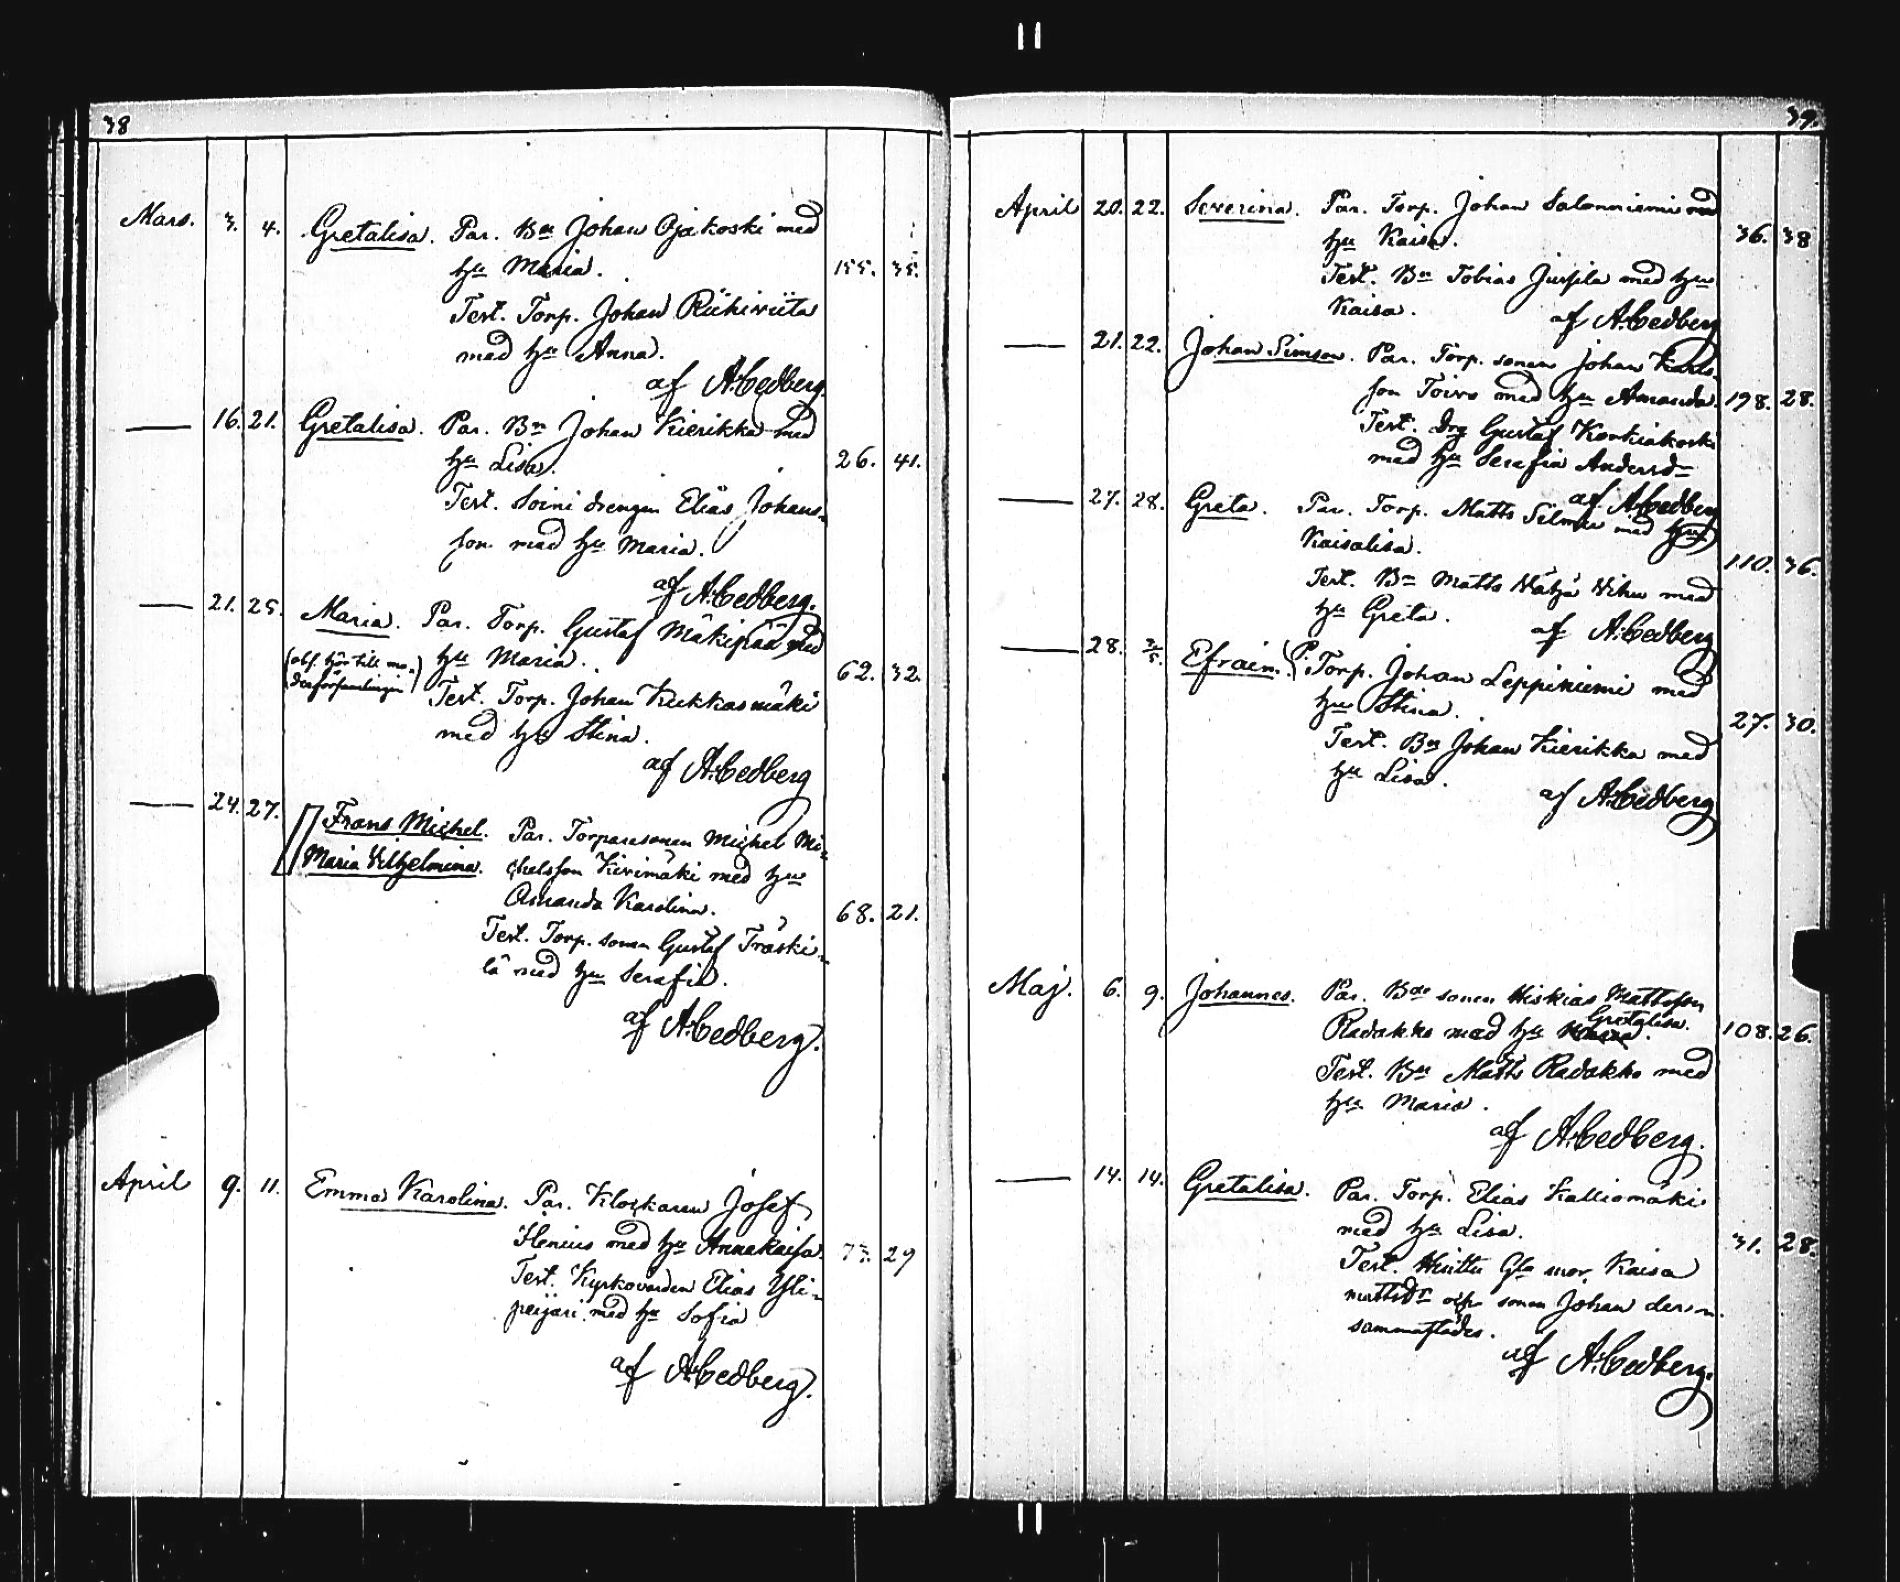 38
Mars. 3. 4. Gretalisa. Par. Bn Johan Ojakoski med
hu Maria. 155. 35.
Test. Torp. Johan Riihiviita
med hu Anna.
af A.Cedberg.
— 16. 21. Gretalisa. Par. Bn Johan Kierikka med
hu Lisa. 26. 41.
Test. Soini drengen Elias Johans-
son med hu Maria.
af A.Cedberg.
— 21. 25. Maria. Par. Torp. Gustaf Mäkipää med
hu Maria. 62. 32.
(obs. hör till mo-
derförsamlingen)
Test. Torp. Johan Kukkasmäki
med hu Stina.
af A.Cedberg
— 24. 27. Frans Michel. Par. Torparesonen Michel Mi-
Maria Vilhelmina. chelsson Kivimäki med hu
Amanda Karolina. 68. 21.
Test. Torp. sonen Gustaf Träski-
lä med hu Serafia.
af A.Cedberg.
April 9. 11. Emma Karolina. Par. Klockaren Josef
Henius med hu Annakaisa. 73. 29
Test. Kyrkovärden Elias Yli-
peijari med hu Sofia
af A.Cedberg.
39.
April 20. 22. Severina. Par. Torp. Johan Salonniemi med
hu Kaisa. 36. 38
Test. Bn Tobias Jussila med hu
Kaisa.
af A.Cedberg
— 21. 22. Johan Simson. Par. Torp. sonen Johan Karls-
son Toivo med hu Amanda. 198. 28.
Test. Drg Gustaf Korkiakoski
med hu Serafia Andersdr
af A.Cedberg
— 27. 28. Greta. Par. Torp. Matts Silmu med hu
Kaisalisa. 110. 36.
Test. Bn Matts Wähä Wihu med
hu Greta.
af A.Cedberg
— 28. 2/5. Efraim. P. Torp. Johan Leppiniemi med
hu Stina. 27. 30.
Test. Bn Johan Kierikka med
hu Lisa.
af A.Cedberg
Maj. 6. 9. Johannes. Par. Bde sonen Hiskias Mattsson
Radakko med hu Gretalisa. 108. 26.
Test. Bn Matts Radakko med
hu Maria.
af A.Cedberg.
— 14. 14. Gretalisa. Par. Torp. Elias Kalliomäki
med hu Lisa. 31. 28.
Test. Hinttu Gla mor. Kaisa
mattsdr och sonen Johan der-
sammastädes.
af A.Cedberg.